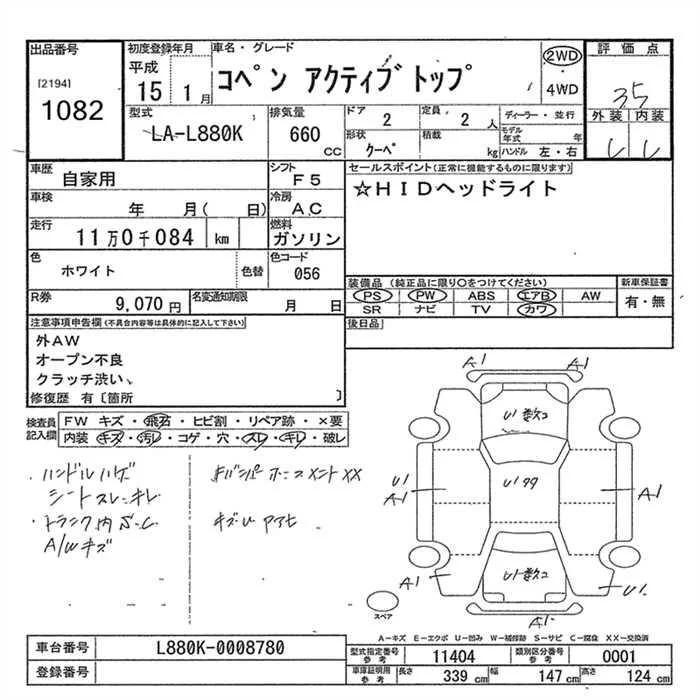 出品番号
[2194]
1082
初度登録年月
平成
15 1 月
車名・グレード
コペン アクティブトップ
2WD
4WD
評価点
3.5
外装 内装
型式
LA-L880K
排気量
660
CC
ドア
2
定員
2 人
形状
クーペ
積載
kg
ディーラー・並行
モデル年式 年
ハンドル 左・右
車歴
自家用
シフト
F5
車検
年 月( 日)
冷房
AC
走行
11万0千084 km
燃料
ガソリン
色
ホワイト
色替
色コード
056
R券
9,070 円
名変通知期限
月 日
セールスポイント(正常に機能するものに限ります)
☆HIDヘッドライト
装備品 (純正品に限り○をつけてください)
PS PW ABS エアB AW
SR ナビ TV カワ
新車保証書
有・無
後日品
注意事項申告欄(不具合内容等は具体的に記入して下さい)
外AW
オープン不良
クラッチ渋い、
修復歴 有〔箇所 〕
検査員
記入欄
FW キズ・飛石・ヒビ割・リペア跡・×要
内装・キズ・汚レ・コゲ・穴・スレ・キレ・破レ
・ハンドルハゲ
シートスレ・キレ
・トランク内 S.C
A/Wキズ
XX
キズU
A1
A1
U数コ
U99
U1
A1
A1
U数コ
A1
U1
A1
スペア
A-キズ E-エクボ U-凹み W-補修跡 S-サビ C-腐食 XX-交換済
車台番号
L880K-0008780
登録番号
型式指定番号
参考
11404
類別区分番号
参考
0001
車庫証明用
参考
長さ 339 cm
幅 147 cm
高さ 124 cm